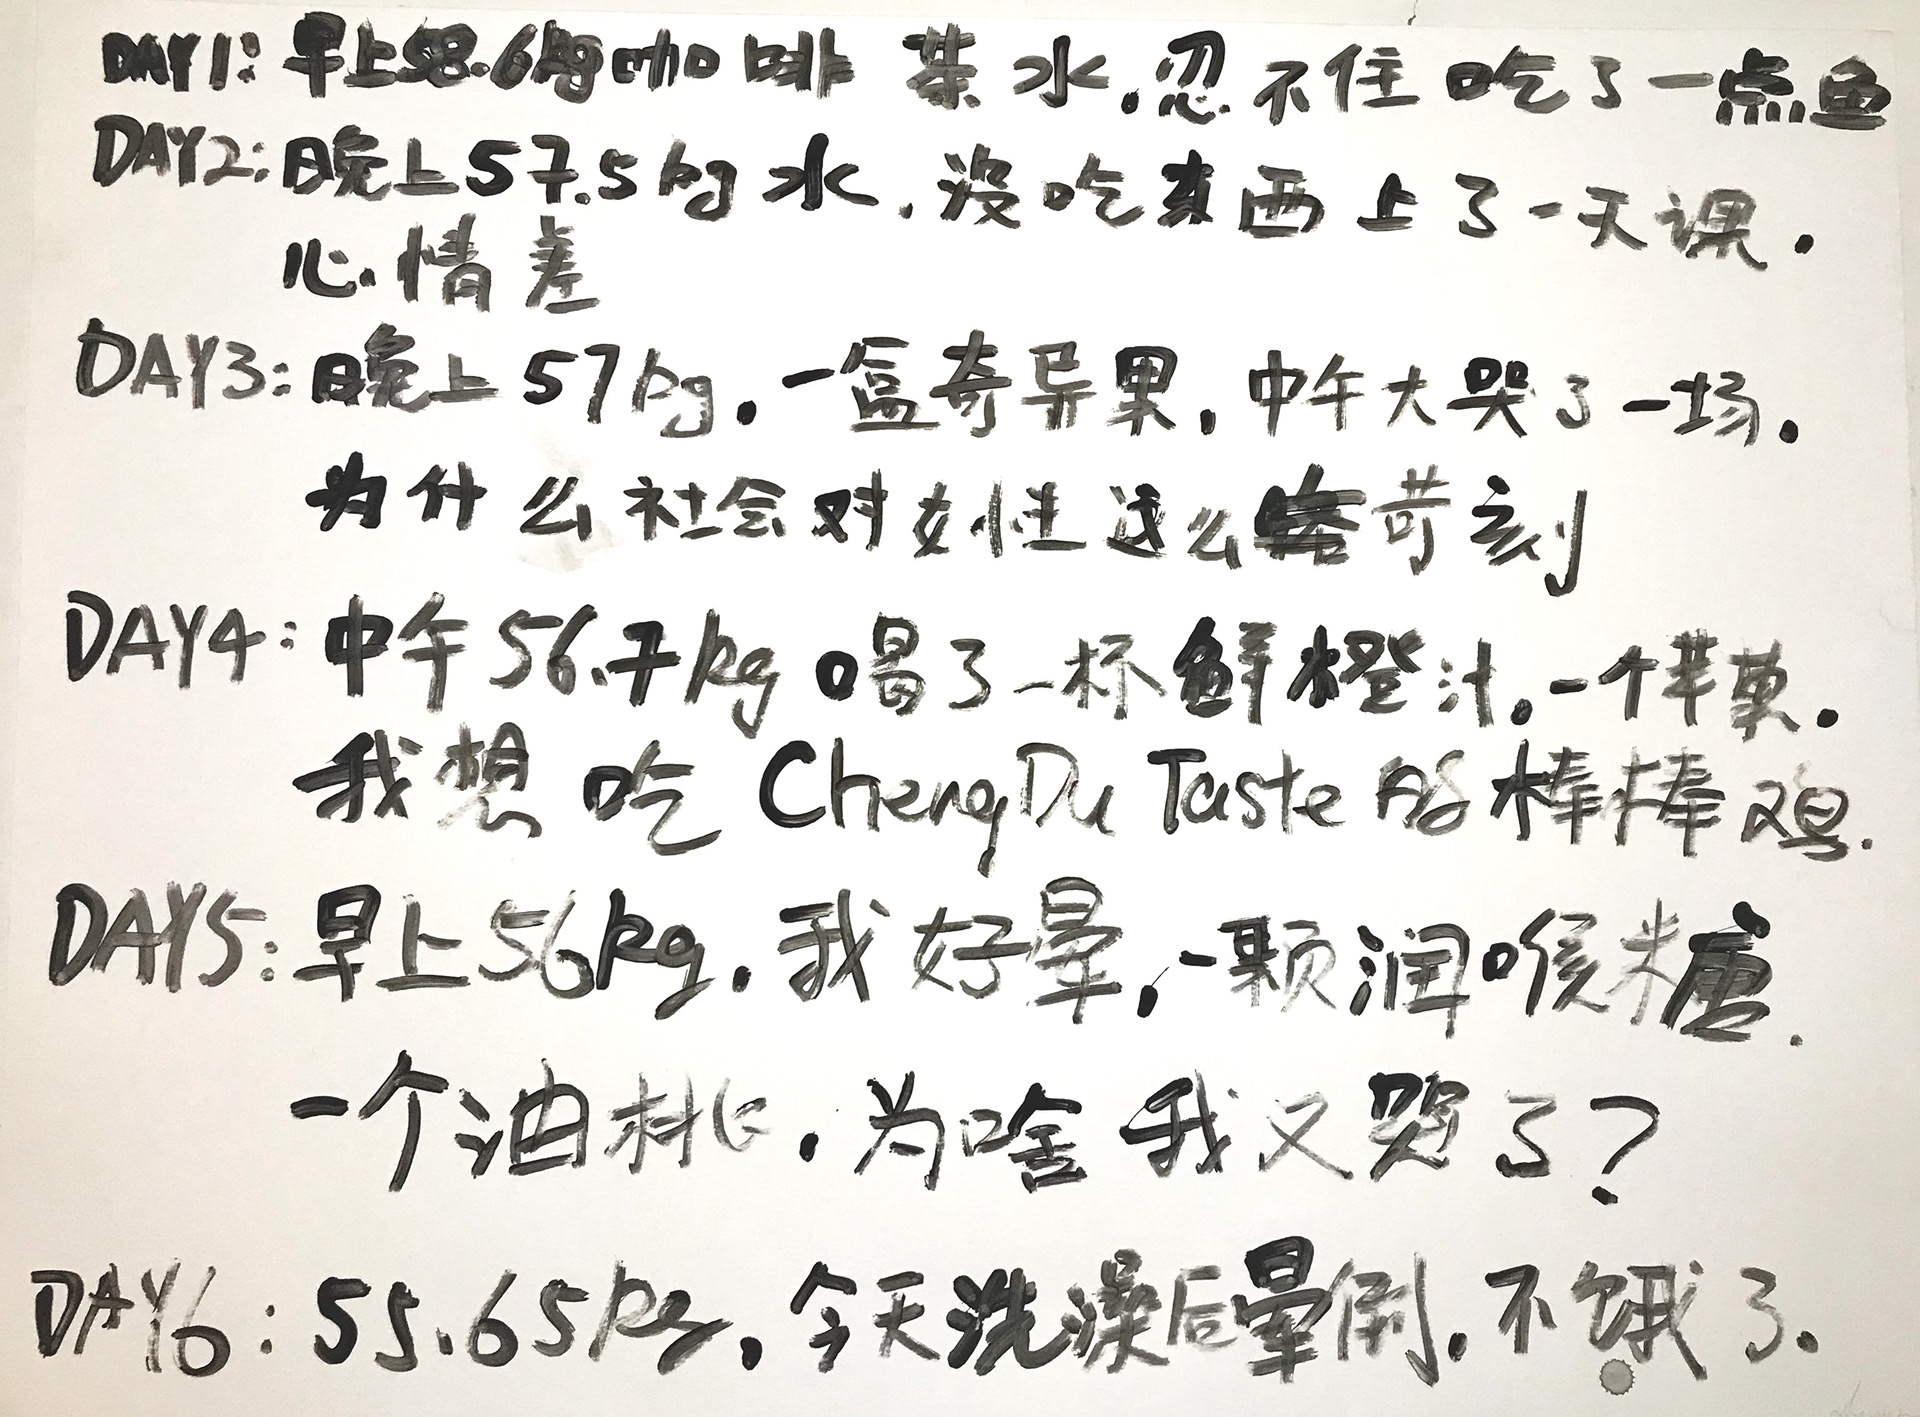 DAY1: 早上58.6kg咖啡 茶 水.忍不住吃了一点鱼
DAY2: 晚上57.5kg 水.没吃东西上了一天课.
心情差
DAY3: 晚上57kg.一盒奇异果,中午大哭了一场.
为什么社会对女性这么苛刻
DAY4: 中午56.7kg 喝了一杯鲜橙汁.一个苹菓.
我想吃 ChengDu Taste 的棒棒鸡.
DAY5: 早上56kg.我好晕,一颗润喉糖.
一个油桃.为啥我又哭了?
DAY6: 55.65kg,今天洗澡后晕倒.不饿了.